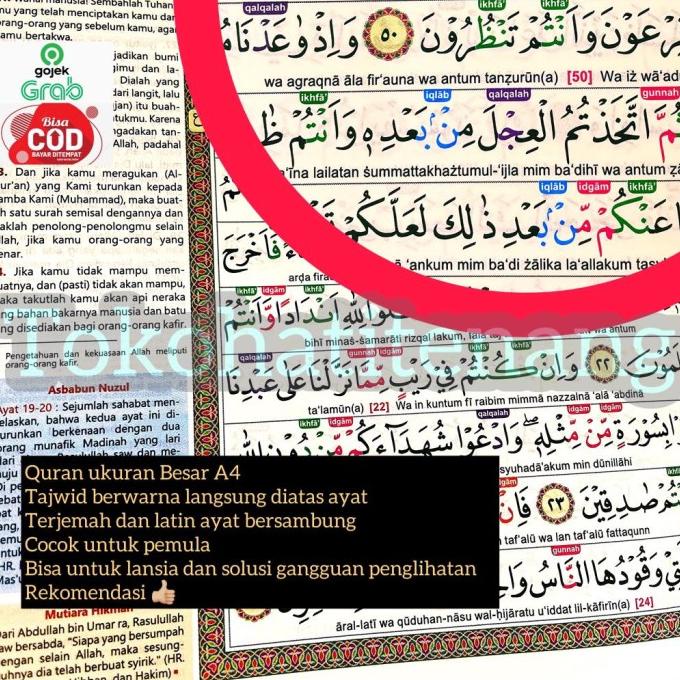 nu yang telah menciptakan kamu dan
orang-orang yang sebelum kamu, agar
kamu bertakwa.
gojek
Grab
Bisa
COD
BAYAR DITEMPAT
jadikan bumi
Dialah yang
dari langit, lalu
itu) buah-
Karena
ngadakan tan-
Allah, padahal
3. Dan jika kamu meragukan (Al-
ur'an) yang Kami turunkan kepada
amba Kami (Muhammad), maka buat-
h satu surah semisal dengannya dan
aklah penolong-penolongmu selain
llah, jika kamu orang-orang yang
enar.
4. Jika kamu tidak mampu mem-
uatnya, dan (pasti) tidak akan mampu,
aka takutlah kamu akan api neraka
ng bahan bakarnya manusia dan batu
ng disediakan bagi orang-orang kafir.
Pengetahuan dan kekuasaan Allah meliputi
orang-orang kafir.
Asbabun Nuzul
Ayat 19-20 : Sejumlah sahabat men-
elaskan, bahwa kedua ayat ini di-
urunkan berkenaan dengan dua
orang munafik Madinah yang lari
dari Rasulullah saw dan me-
Mutiara Hikmah
Dari Abdullah bin Umar ra, Rasulullah
aw bersabda, "Siapa yang bersumpah
engan selain Allah, maka sesung-
uhnya dia telah berbuat syirik." (HR.
Hibban, dan Hakim)
qalqalah ikhfa' ikhfa'
فِرْعَوْنَ وَاَنْتُمْ تَنْظُرُوْنَ ٥٠ وَاِذْ وٰعَدْنَا
wa agraqnā āla fir'auna wa antum tanẓurūn(a) [50] Wa iż wā'ad
ikhfa' iqlāb qalqalah gunnah
ثُمَّ اتَّخَذْتُمُ الْعِجْلَ مِنْۢ بَعْدِهٖ وَاَنْتُمْ
'īna lailatan ṡummattakhażtumul-'ijla mim ba'dihī wa antum
iqlāb idgām ikhfa'
عَنْكُمْ مِّنْۢ بَعْدِ ذٰلِكَ لَعَلَّكُمْ
'ankum mim ba'di żālika la'allakum
فَاَخْرَجَ
ikhfa' idgām ikhfa' ikhfa'
لِلّٰهِ اَنْدَادًا وَّاَنْتُمْ
bihī minaṡ-ṡamarāti rizqal lakum,
wa antum
qalqalah gunnah idgām ikhfa' ikhfa'
تَعْلَمُوْنَ ٢٢ وَاِنْ كُنْتُمْ فِيْ رَيْبٍ مِّمَّا نَزَّلْنَا عَلٰى عَبْدِنَا
ta'lamūn(a) [22] Wa in kuntum fī raibim mimmā nazzalnā 'alā 'abdinā
qalqalah idgām
بِسُوْرَةٍ مِّنْ مِّثْلِهٖ وَادْعُوْا شُهَدَاۤءَكُمْ مِّنْ دُوْنِ اللّٰهِ
syuhadā'akum min dūnillāhi
صٰدِقِيْنَ ٢٣ فَاِنْ
taf'alū wa lan taf'alū fattaqunn
gunnah
وَقُوْدُهَا النَّاسُ
āral-latī wa qūduhan-nāsu wal-ḥijāratu u'iddat lil-kāfirīn(a) [24]
Tokohatitenang
Quran ukuran Besar A4
Tajwid berwarna langsung diatas ayat
Terjemah dan latin ayat bersambung
Cocok untuk pemula
Bisa untuk lansia dan solusi gangguan penglihatan
Rekomendasi 👍🏻